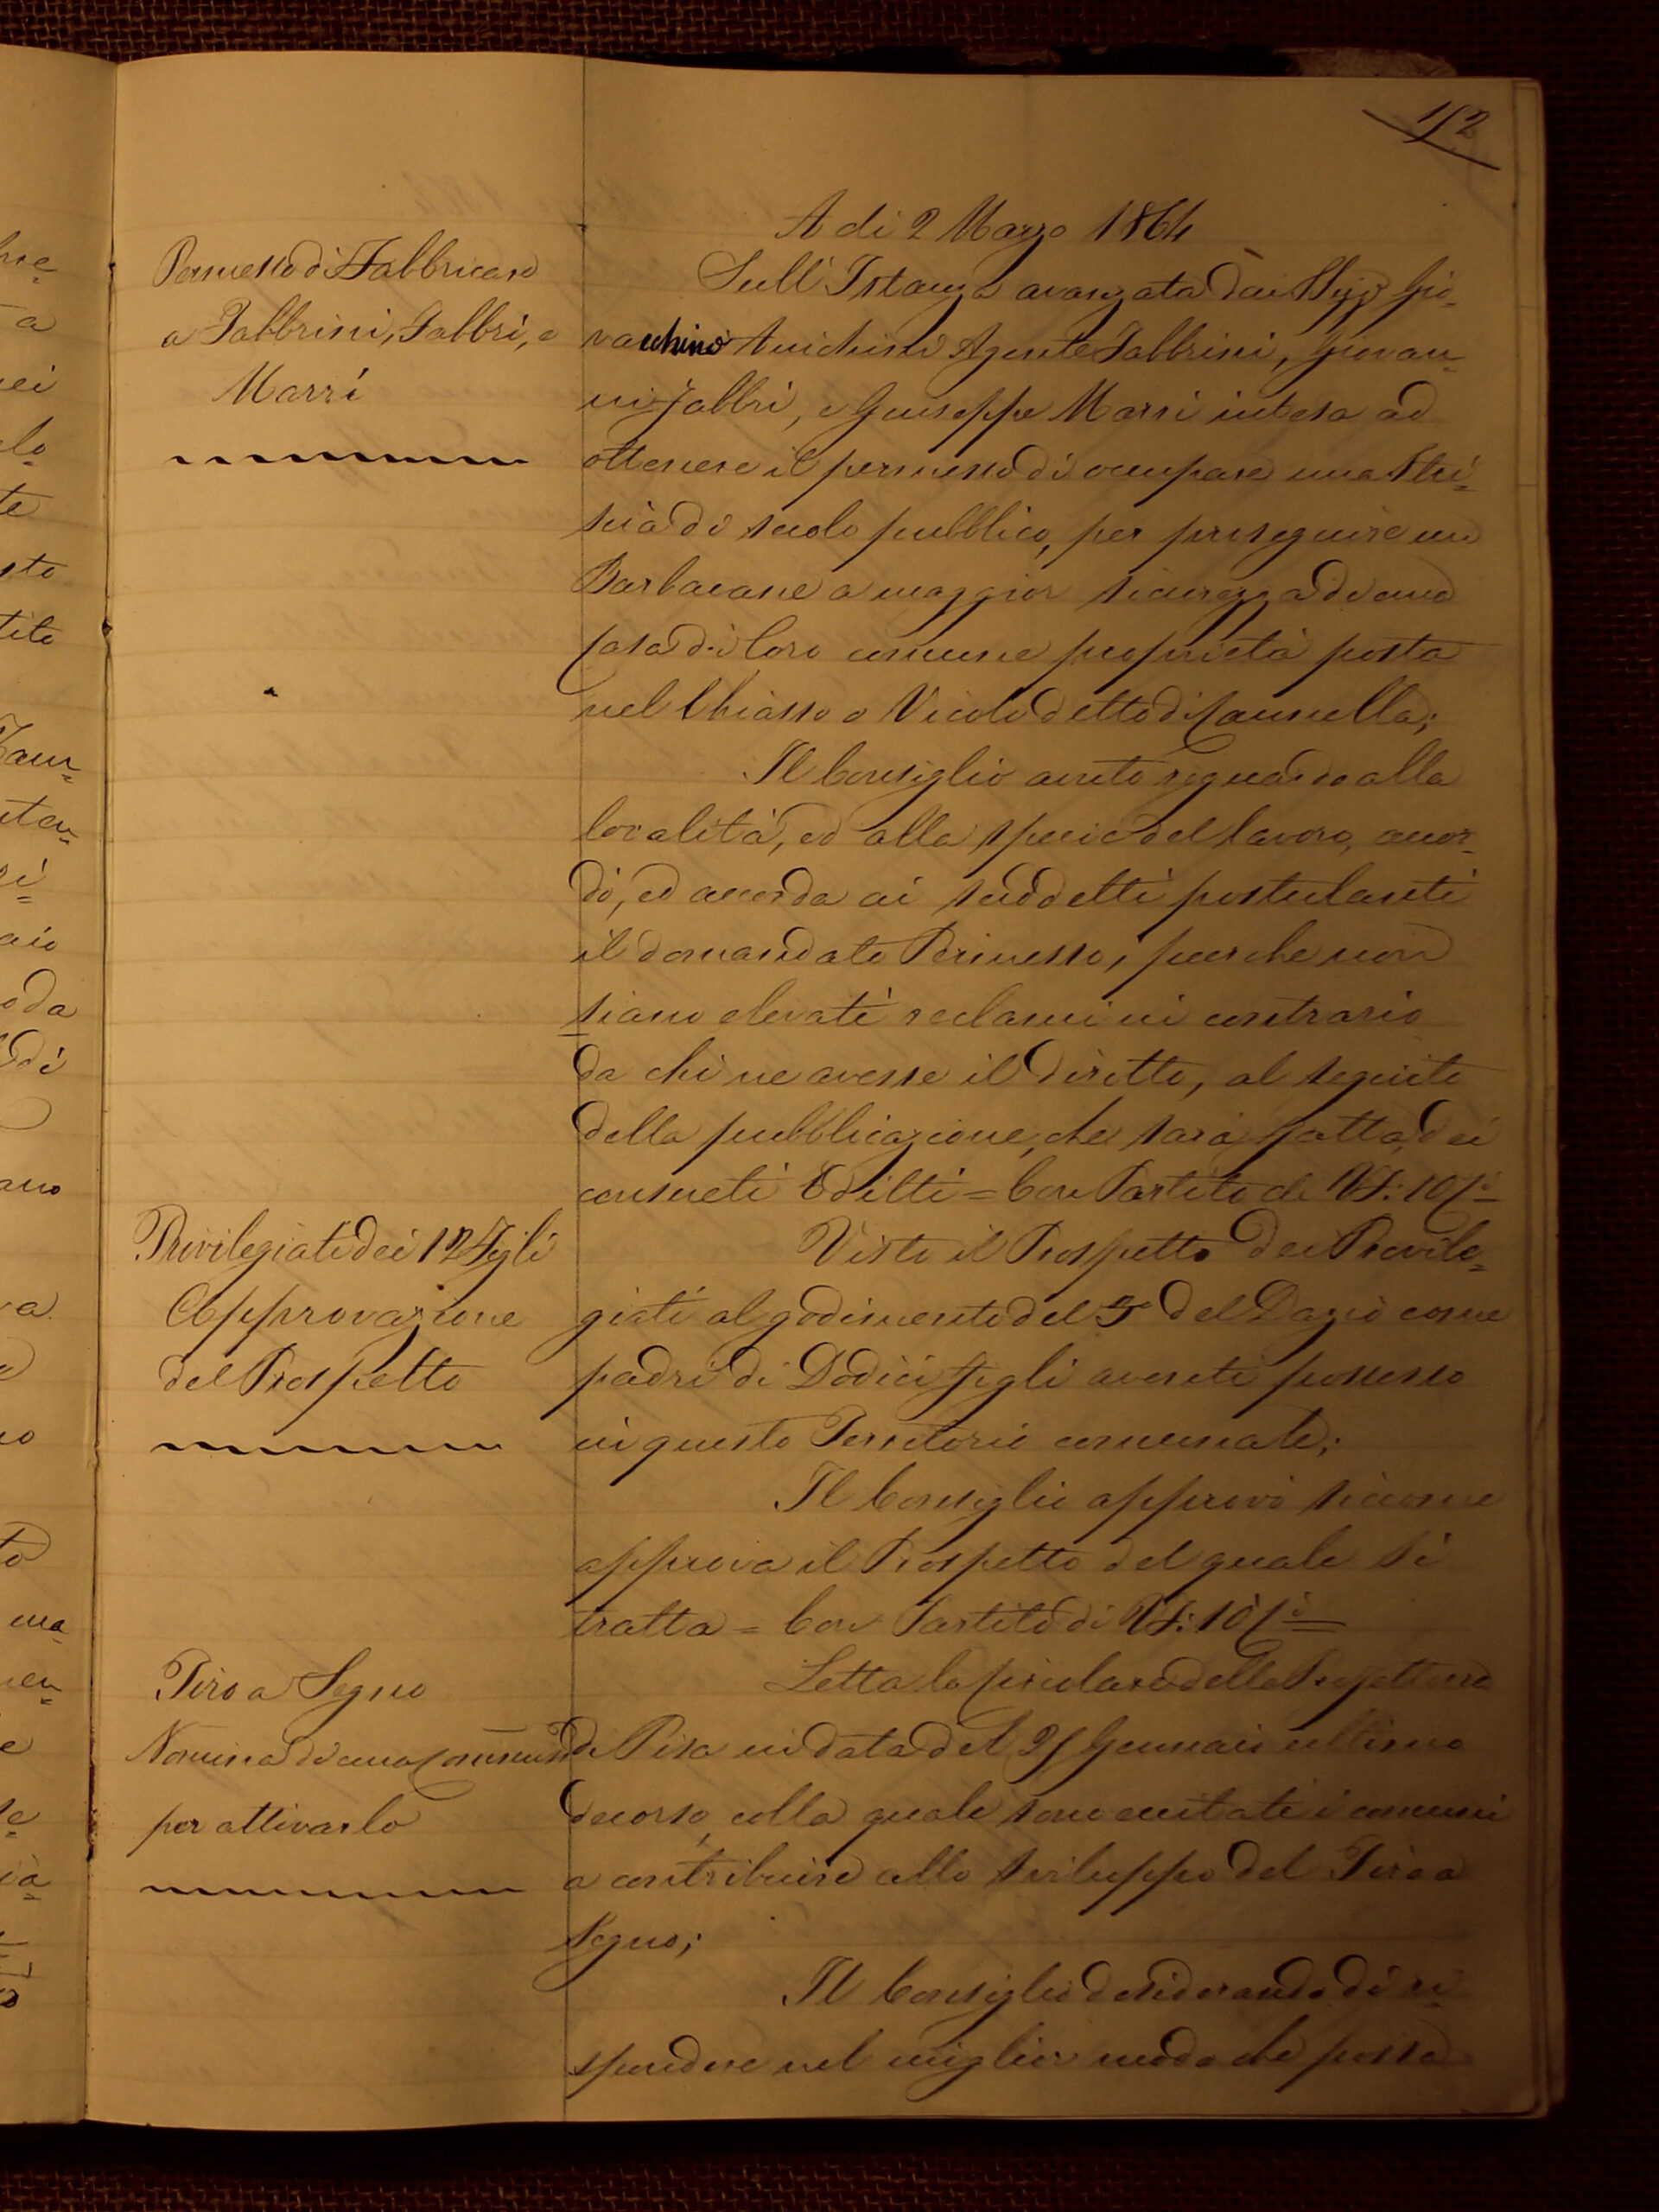 152
A di 2 Marzo 1864
Permesso di Fabbricare
a Fabbrini, Fabbri, e
Marri
Sull' Istanza avanzata dai Sigg. Gio-
vacchino Anichini Agente Fabbrini, Giovan-
ni Fabbri, e Giuseppe Marri intesa ad
ottenere il permesso di occupare una stri-
scia di suolo pubblico, per proseguire un
Barbacane a maggior sicurezza di una
Casa di loro comune proprietà posta
nel Chiasso o Vicolo detto di Cannella;
Il Consiglio avuto riguardo alla
località, ed alla specie del lavoro, accor-
dò, ed accorda ai suddetti postulanti
il domandato Permesso, purche non
siano elevati reclami in contrario
da chi ne avesse il diritto, al seguito
della pubblicazione, che sarà fatta, dei
consueti Editti = Con Partito di Vf: 10 fi
Privilegiati dei 12 Figli
Approvazione
del Prospetto
Visto il Prospetto dei Privile-
giati al godimento del del Dazio come
padri di Dodici figli aventi possesso
in questo Territorio comunale;
Il Consiglio approvò siccome
approva il Prospetto del quale si
tratta = Con Partito di Vf: 10 fi
Tiro a Segno
Nomina di una Commiss
per attivarlo
Letta la Circolare della Prefettura
di Pisa in data del Gennaio ultimo
decorso, colla quale sono eccitati i comuni
a contribuire allo sviluppo del Tiro a
Segno;
Il Consiglio desiderando di ri-
spondere nel miglior modo che possa